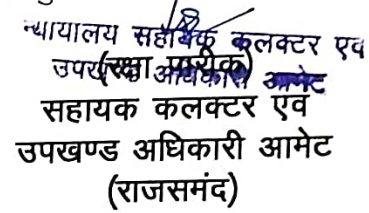 न्यायालय सहायक कलक्टर एवं
उपखण्ड अधिकारी आमेट
(रक्षा पारीक)
सहायक कलक्टर एवं
उपखण्ड अधिकारी आमेट
(राजसमंद)